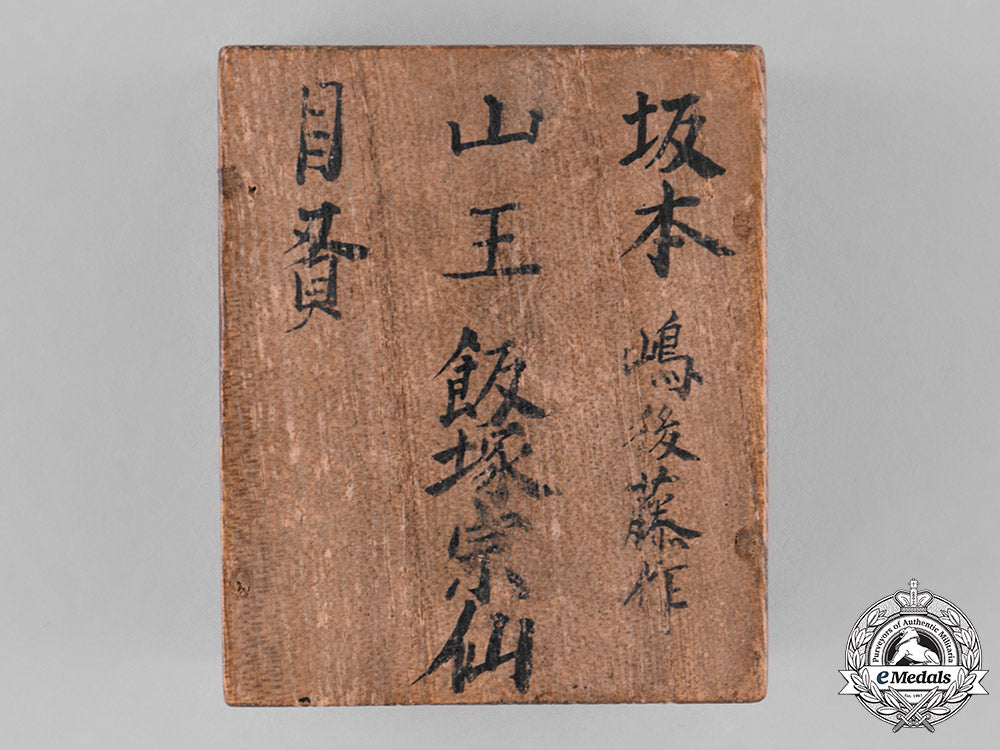 坂本 嶋後藤作
山王 飯塚宗仙
目賛
Purveyors of Authentic Militaria
eMedals
Est. 1967